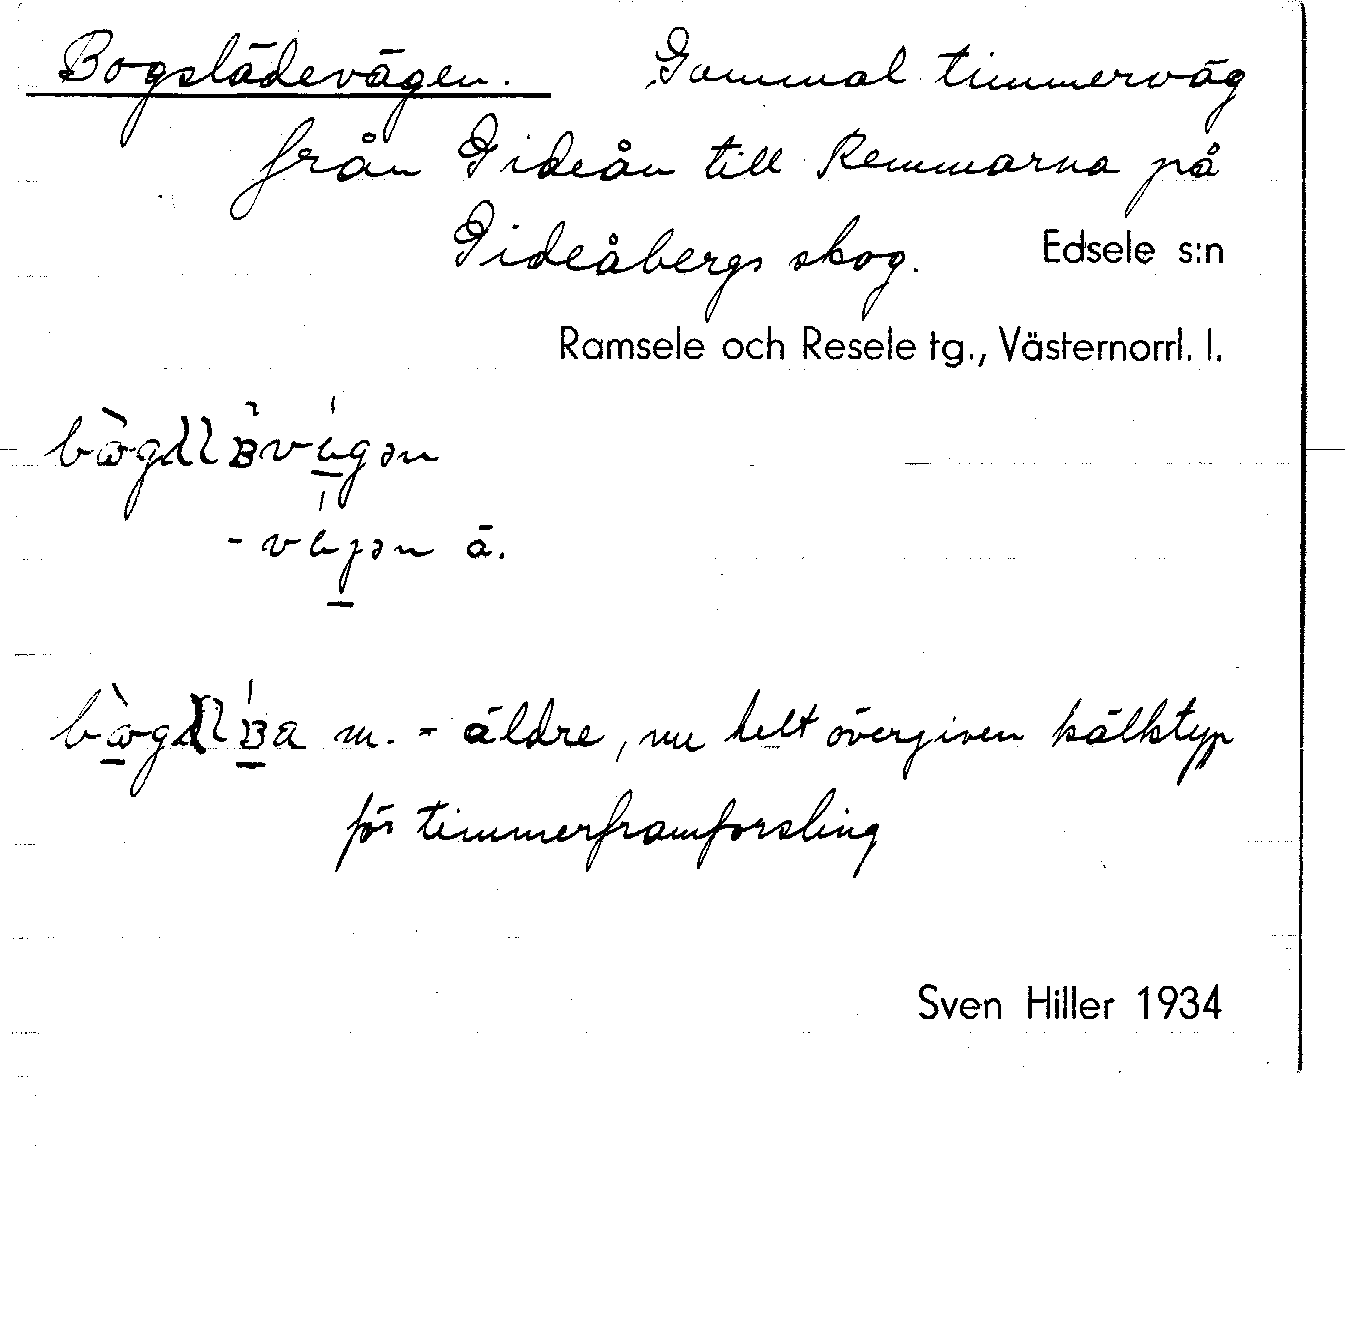 Bogslädevägen. Gammal timmerväg
från Gideån till Remmarna på
Gideåbergs skog. Edsele s:n
Ramsele och Resele tg., Västernorrl. l.
ä.
m. - äldre, nu helt övergiven kälktyp
för timmerframforsling
Sven Hiller 1934